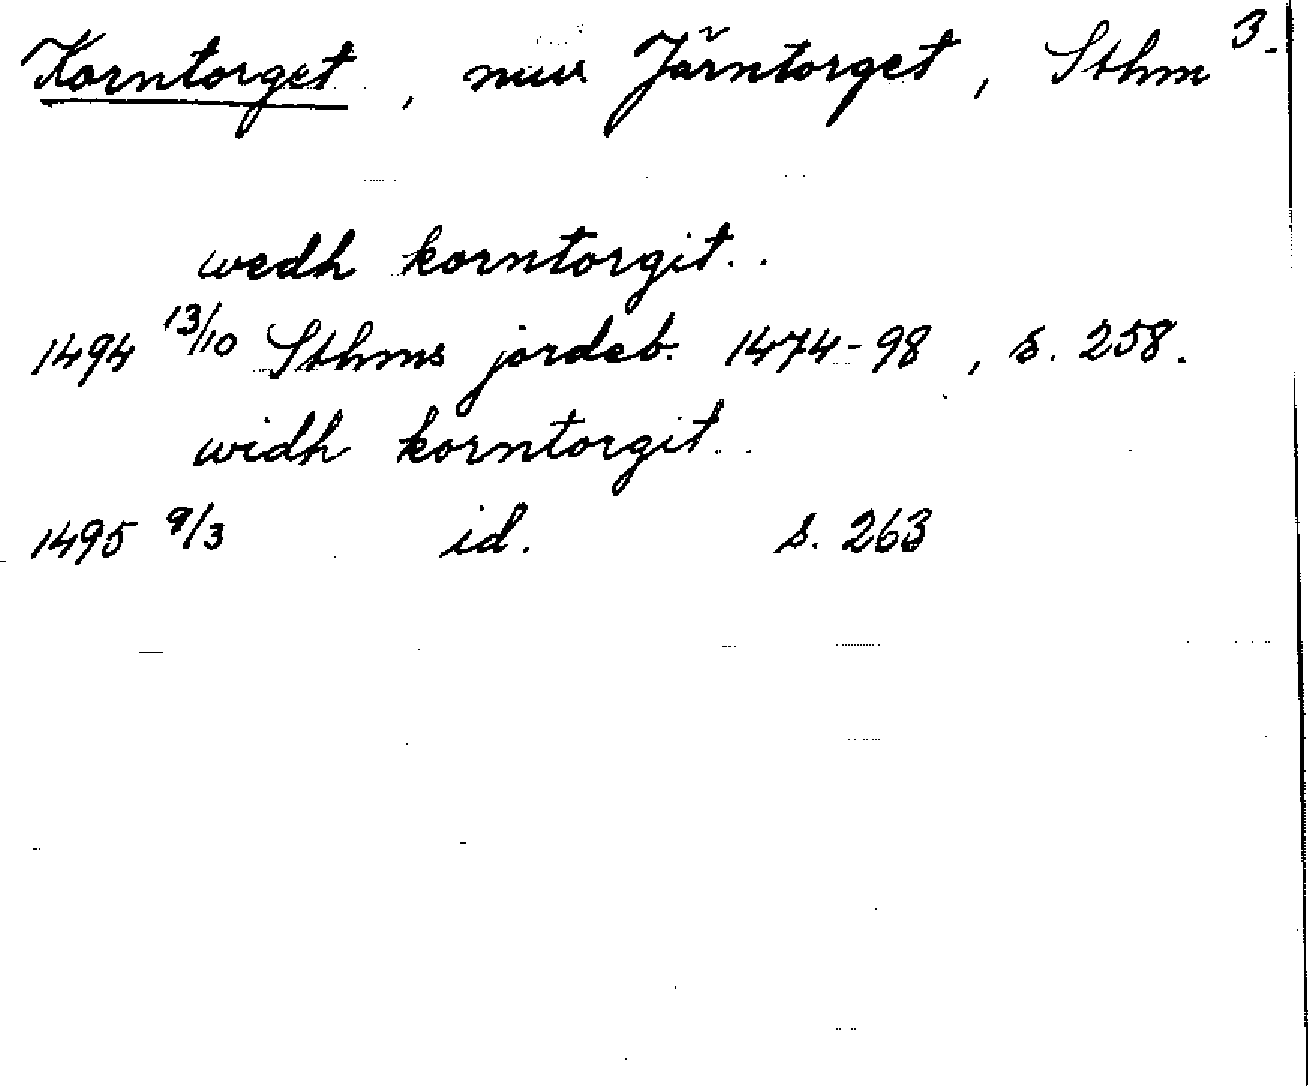 Korntorget, nuv Järntorget, Sthm 3.
wedh korntorgit..
1494 13/10 Sthms jordeb. 1474-98, s. 258.
widh korntorgit..
1495 9/3 id. s. 263